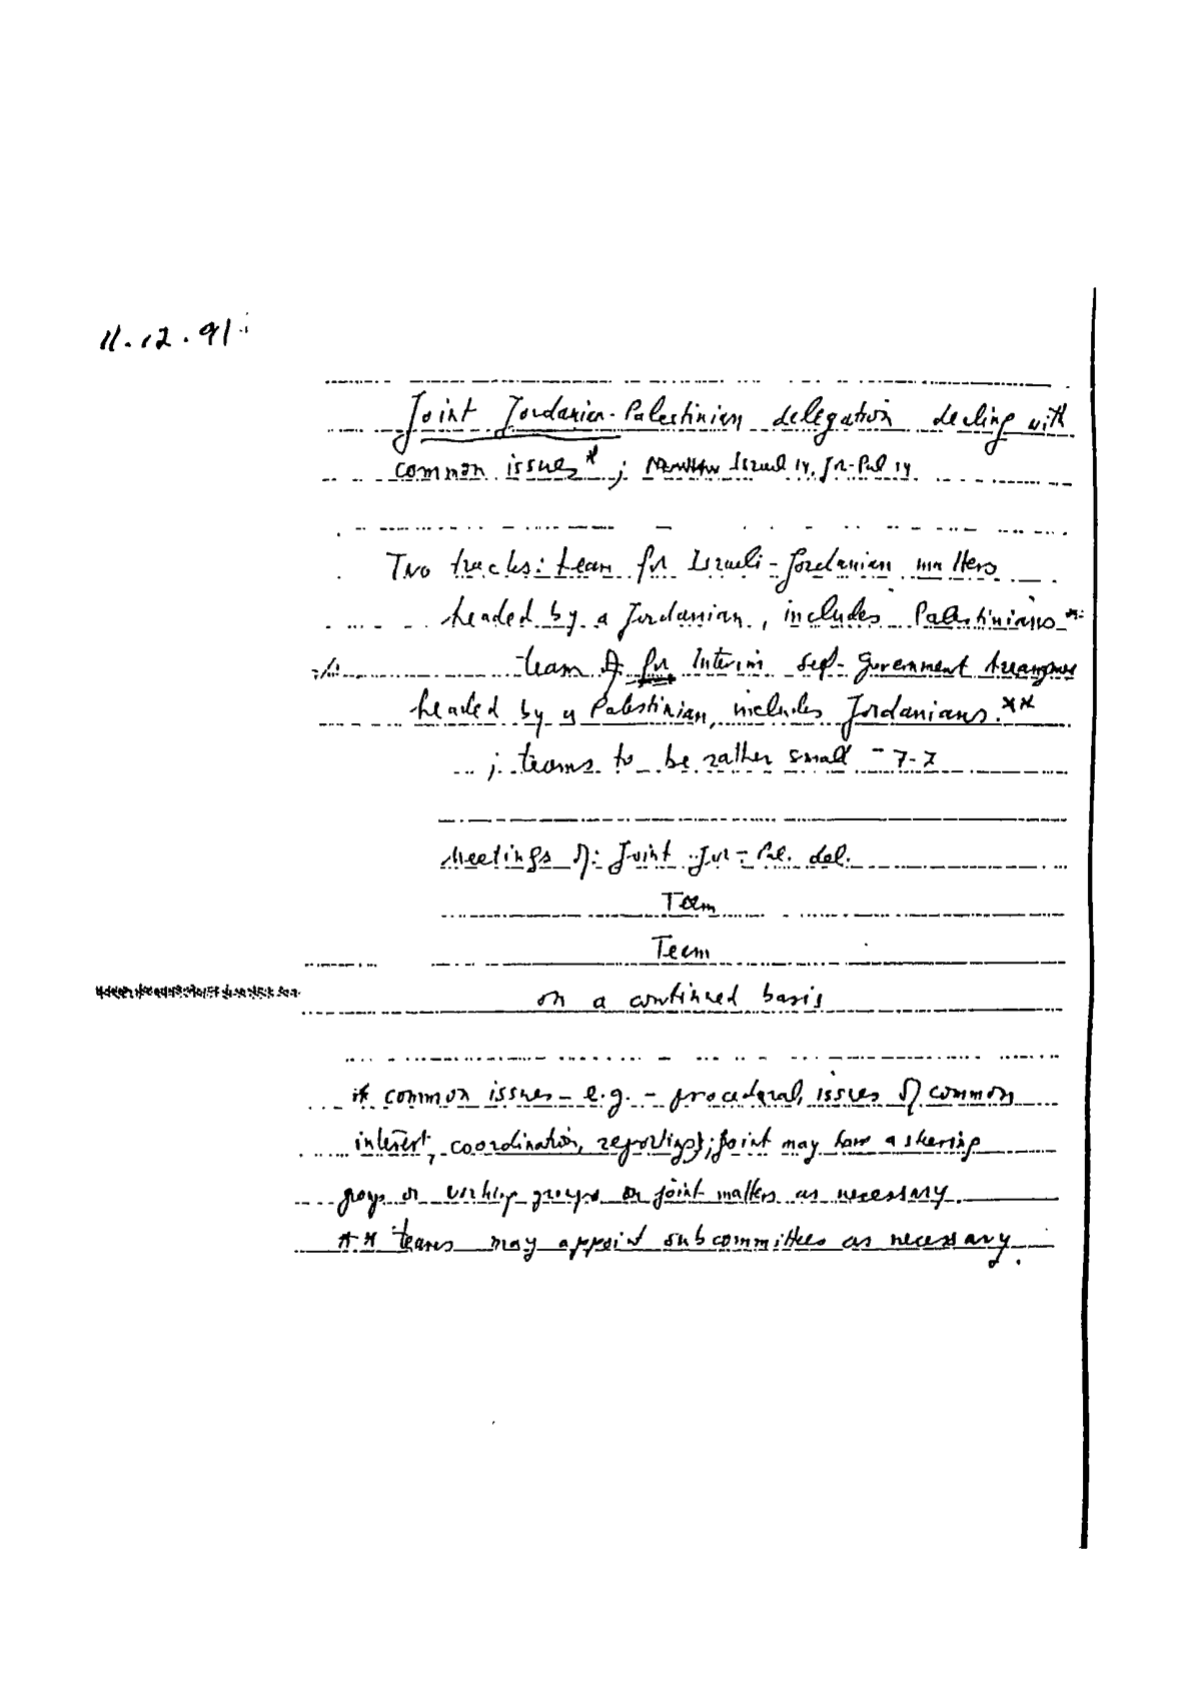 11.12.91
Joint Jordanian-Palestinian delegation dealing with
common issues*; Israel 14, Jr-Pal 14
Two tracks: team for Israeli-Jordanian matters
headed by a Jordanian, includes Palestinians**
team for Interim self-government
headed by a Palestinian, includes Jordanians.**
; teams to be rather small - 7-7
Meetings of: Joint Jor-Pal. del.
Team
Team
on a continued basis
* common issues - e.g. - procedural, issues of common
interest, coordination, reporting; joint may have a steering
or working groups on joint matters as necessary.
** teams may appoint subcommittees as necessary.